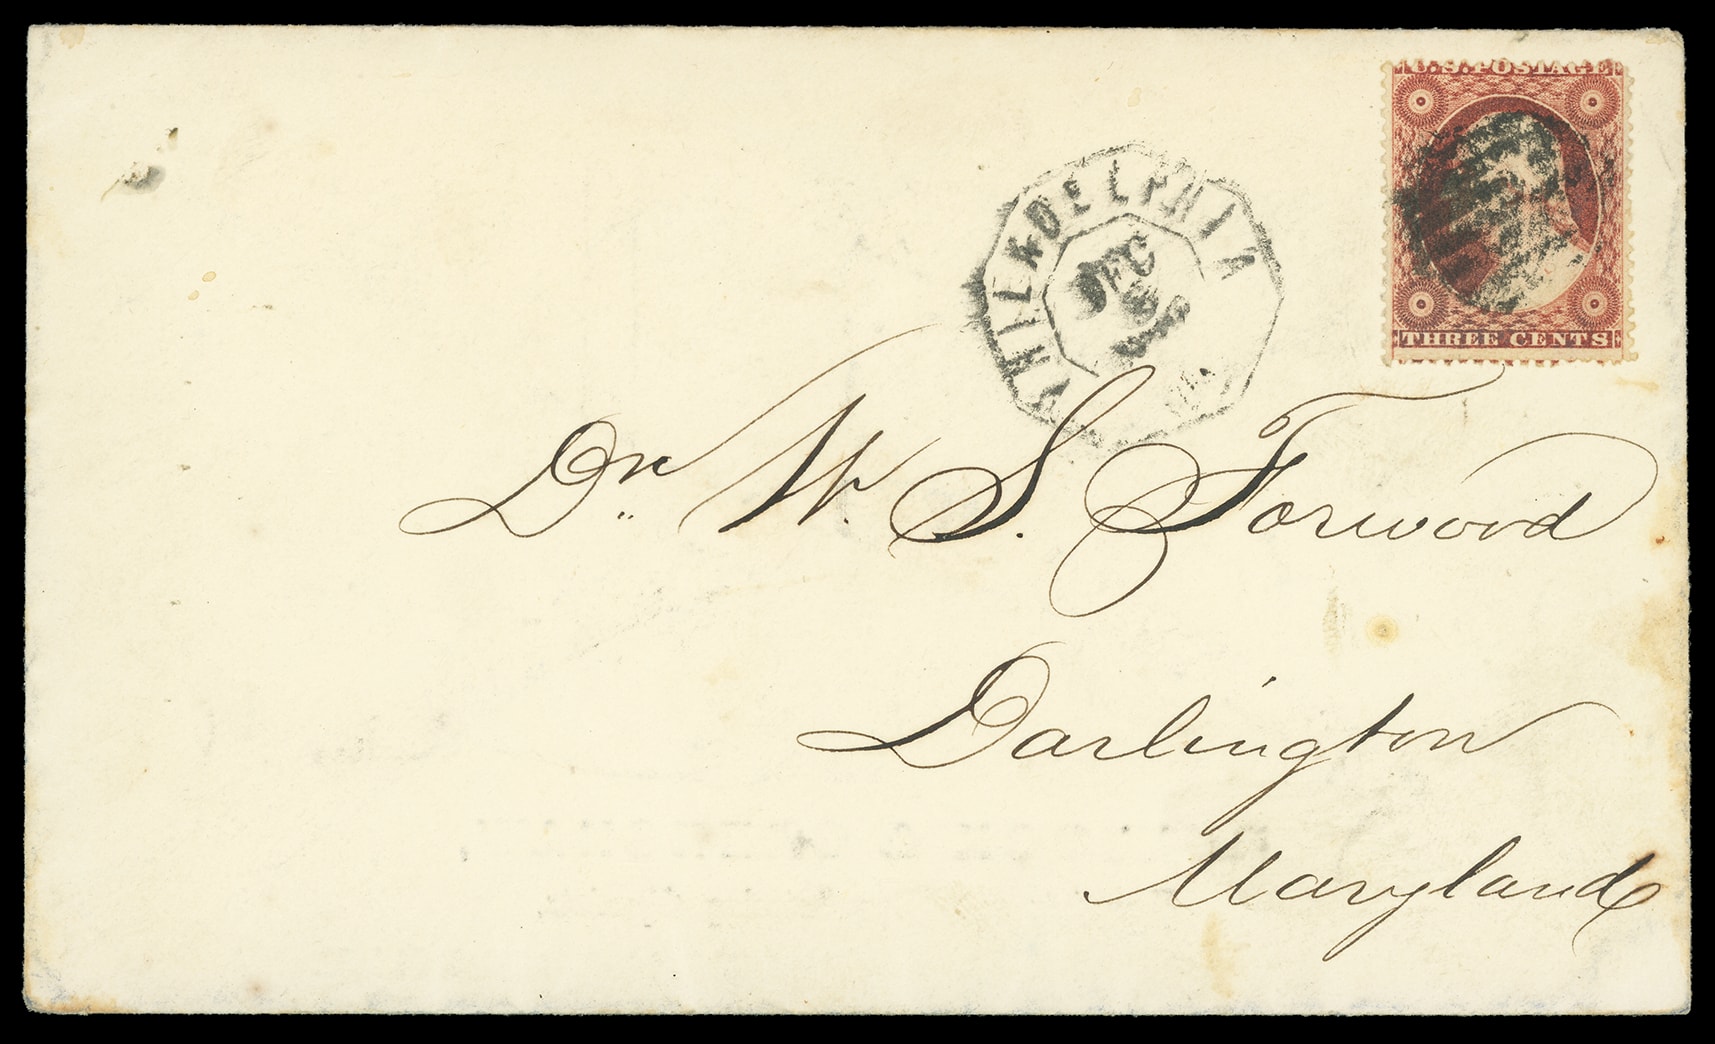 U.S. POSTAGE
THREE CENTS
PHILADELPHIA
DEC
Dr. W. S. Forwood
Darlington
Maryland